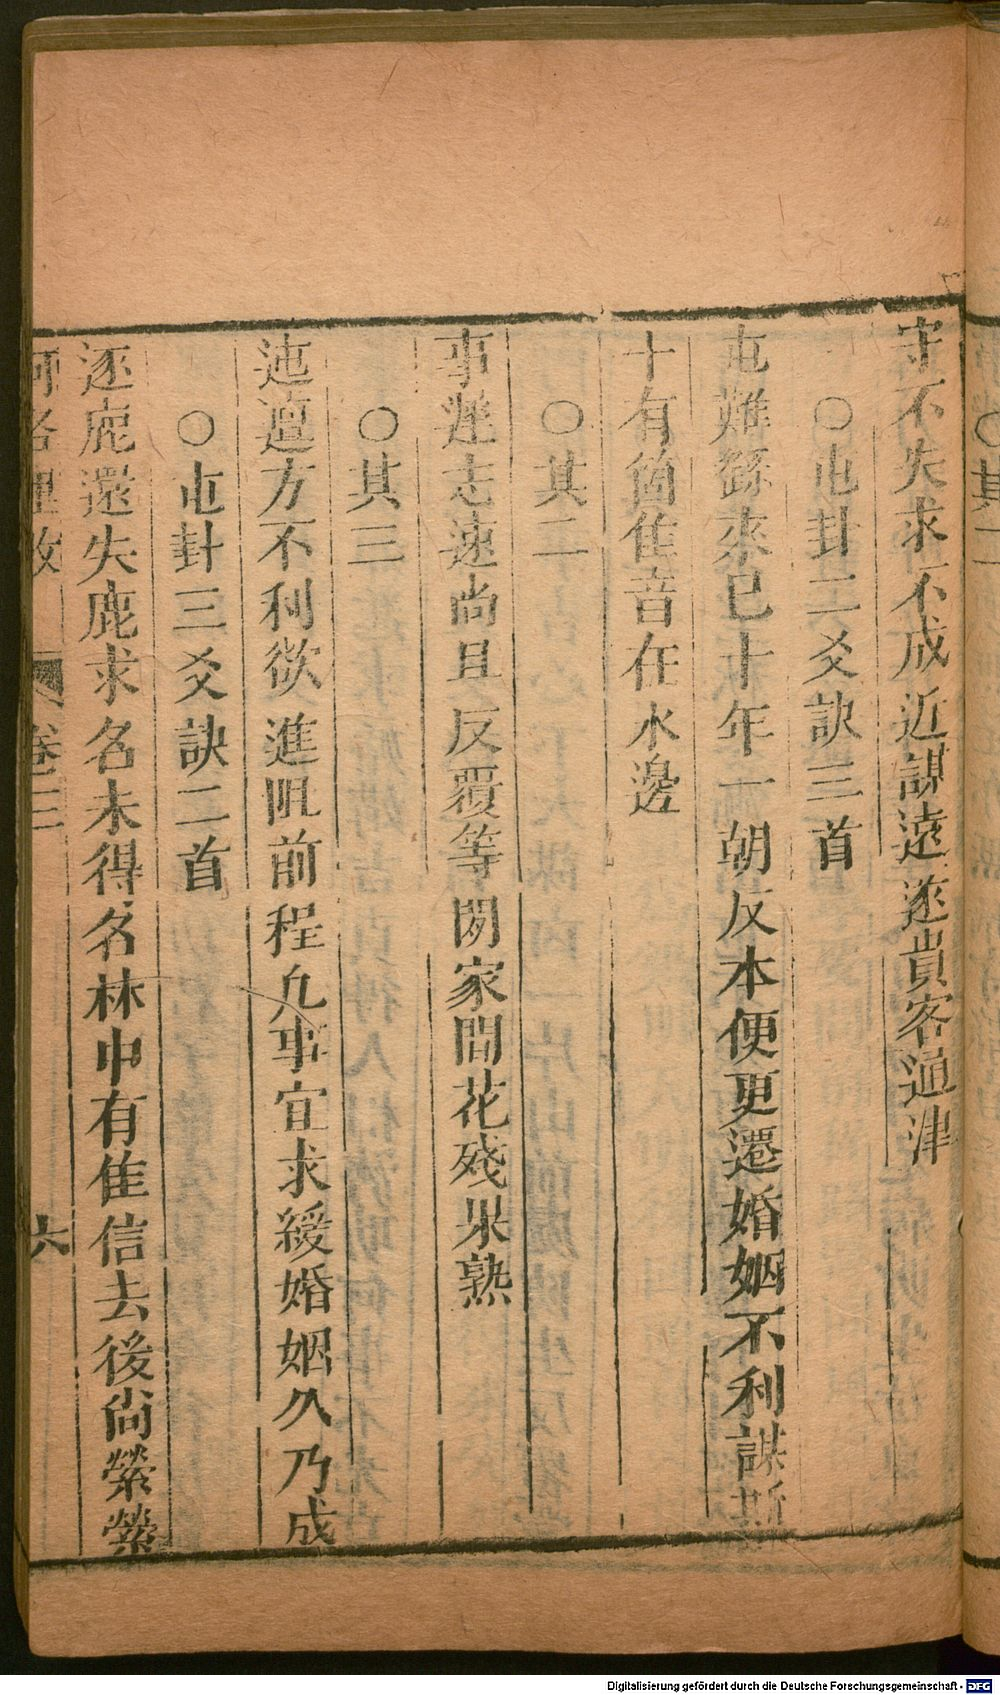 守不失求不成近謀遠遂貴客通津
○屯卦二爻訣三首
屯難繇來已十年一朝反本便更還婚姻不利謀斯
十有箇隹音在水邊
○其二
事遲志速尚且反覆等閑家間花殘果熟
○其三
迍邅方不利欲進阻前程凡事宜求緩婚姻久乃成
○屯卦三爻訣二首
逐鹿還失鹿求名未得名林中有隹信去後尚縈縈
河洛理數
卷三
六
○其二
Digitalisierung gefördert durch die Deutsche Forschungsgemeinschaft - DFG